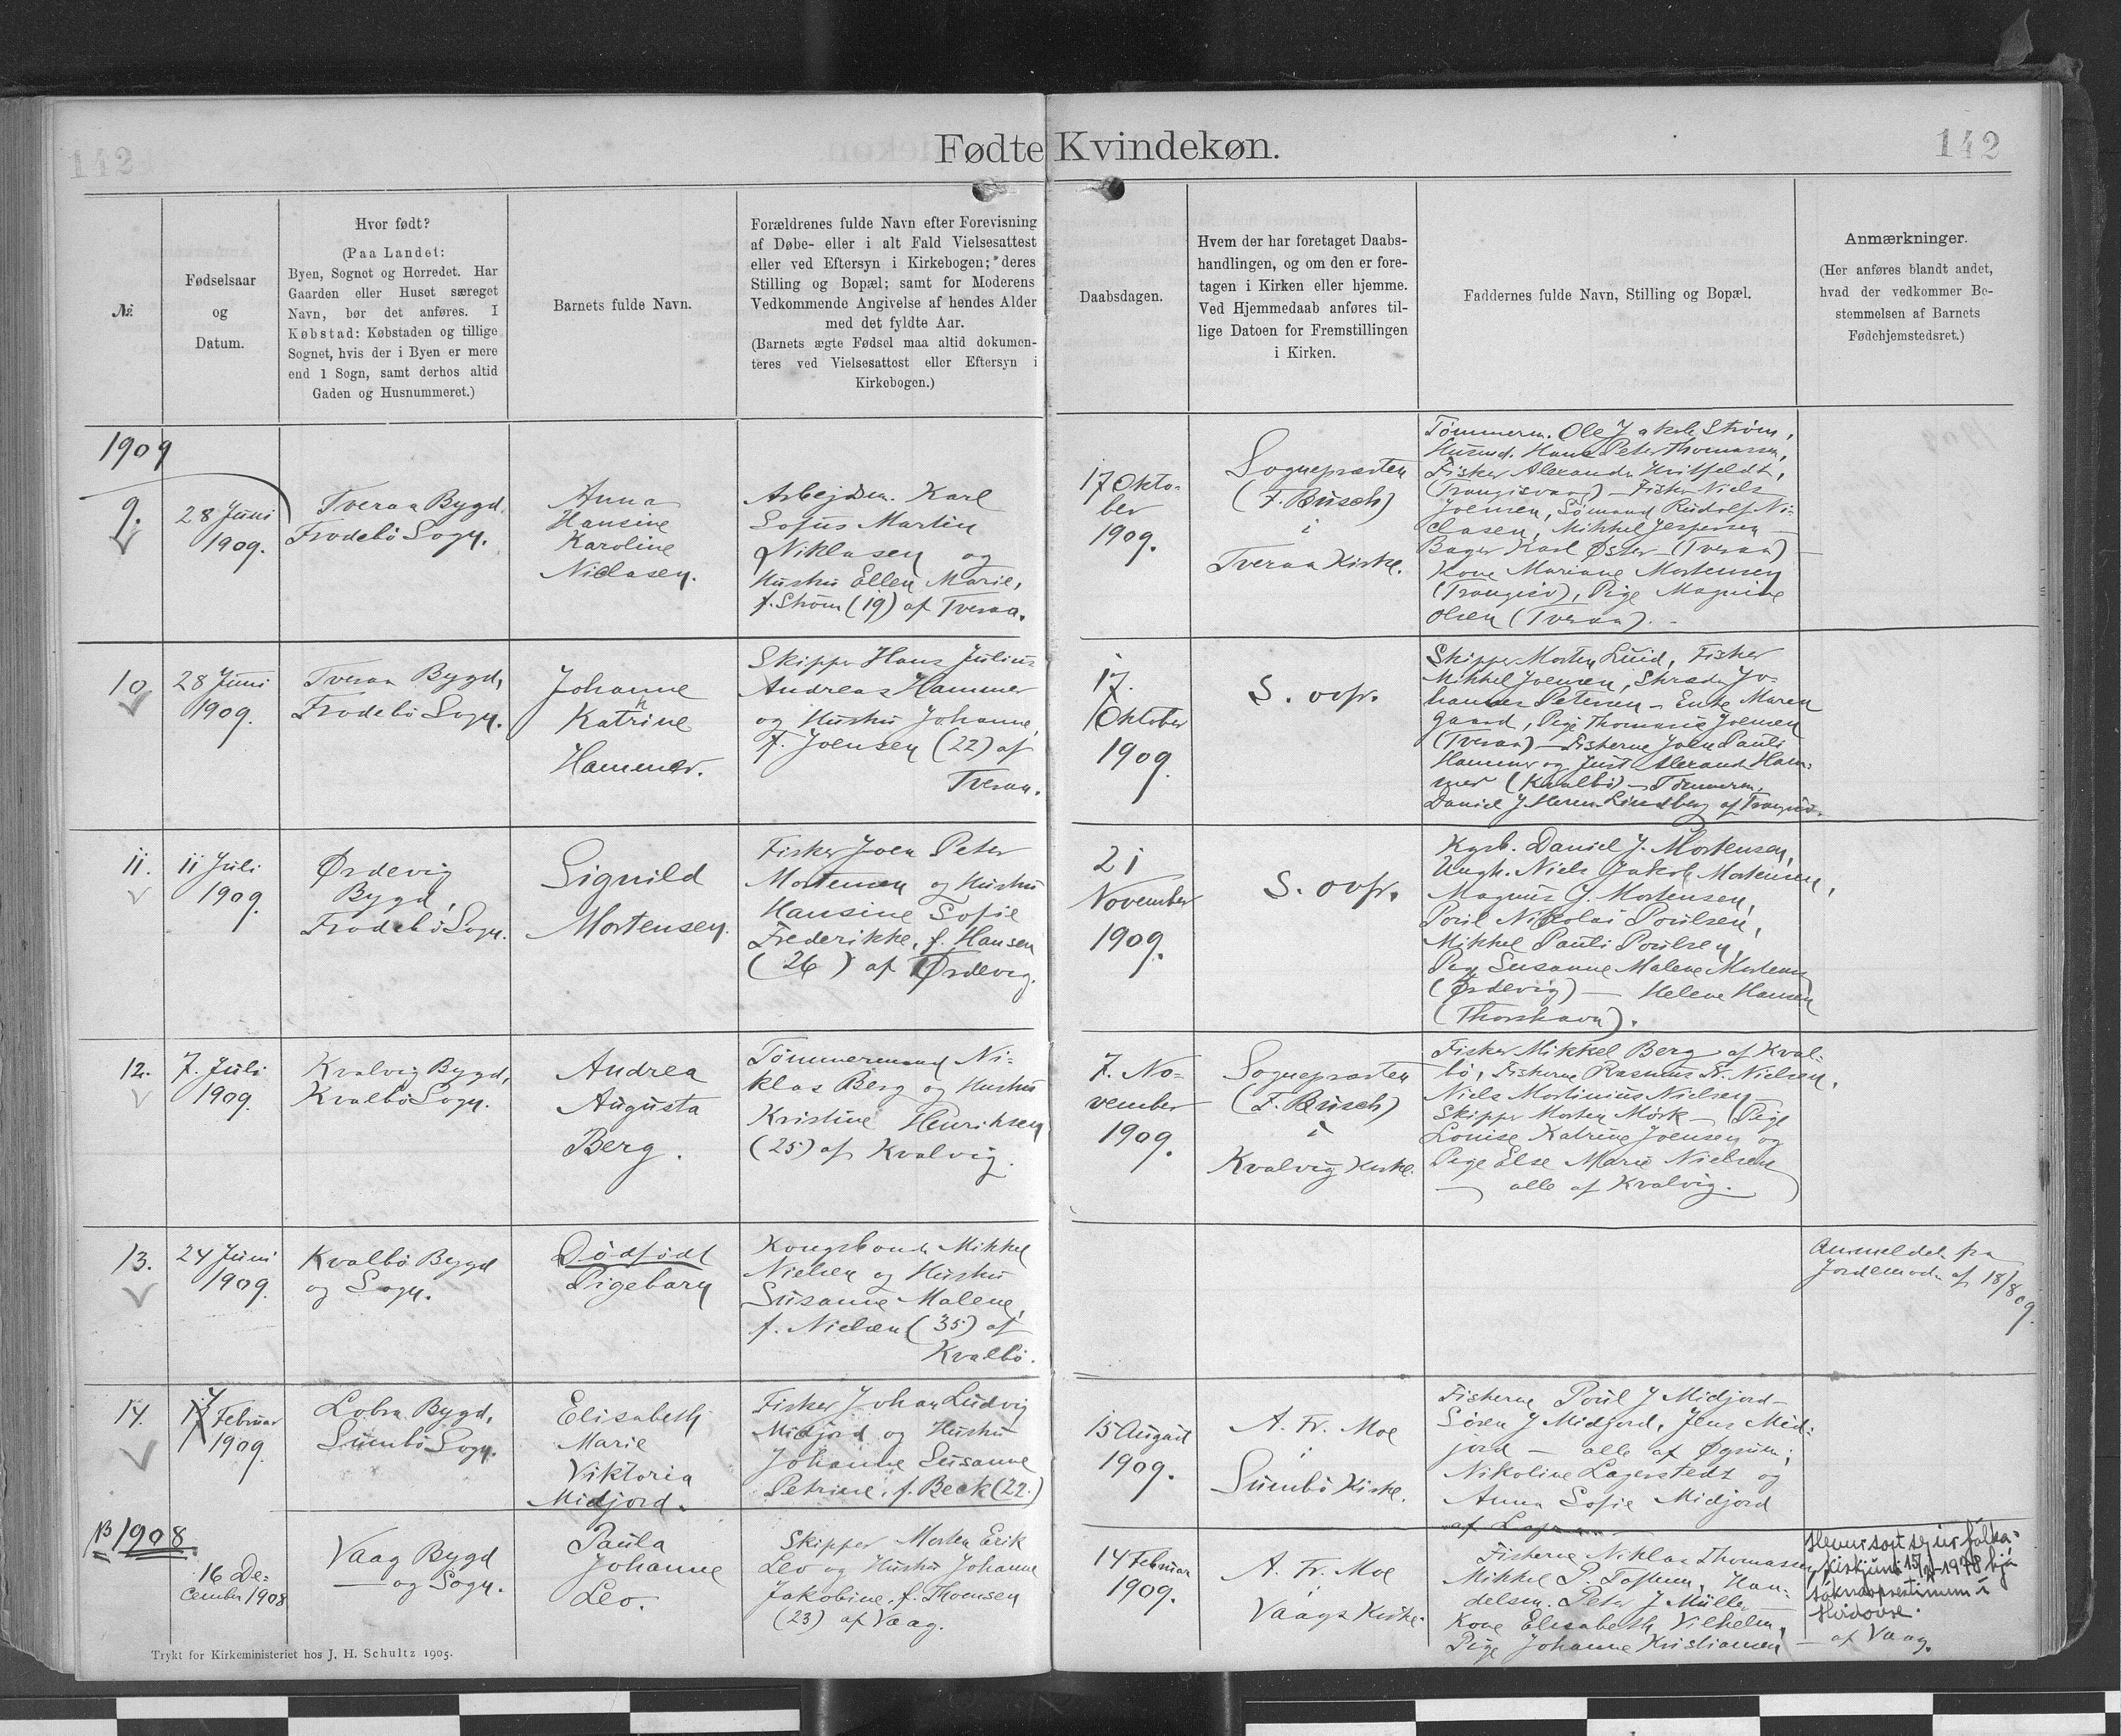 142
Fødte Kvindekøn.
142
№
Fødselsaar
og
Datum.
Hvor født?
(Paa Landet:
Byen, Sognet og Herredet. Har
Gaarden eller Huset særeget
Navn, bør det anføres. I
Købstad: Købstaden og tillige
Sognet, hvis der i Byen er mere
end 1 Sogn, samt derhos altid
Gaden og Husnummeret.)
Barnets fulde Navn.
Forældrenes fulde Navn efter Forevisning
af Døbe- eller i alt Fald Vielsesattest
eller ved Eftersyn i Kirkebogen; deres
Stilling og Bopæl; samt for Moderens
Vedkommende Angivelse af hendes Alder
med det fyldte Aar.
(Barnets ægte Fødsel maa altid dokumen-
teres ved Vielsesattest eller Eftersyn i
Kirkebogen.)
Daabsdagen.
Hvem der har foretaget Daabs-
handlingen, og om den er fore-
tagen i Kirken eller hjemme.
Ved Hjemmedaab anføres til-
lige Datoen for Fremstillingen
i Kirken.
Faddernes fulde Navn, Stilling og Bopæl.
Anmærkninger.
(Her anføres blandt andet,
hvad der vedkommer Be-
stemmelsen af Barnets
Fødehjemstedsret.)
1909
9.
28 Juni
1909.
Tveraa Bygd,
Frodebö Sogn.
Anna
Hansine
Karoline
Niclasen.
Arbejdsm. Karl
Sofus Martin
Niklasen og
Hustru Ellen Marie,
f. Strøm (19) af Tveraa.
17 Okto-
ber
1909.
Sognepræsten
(F. Busch)
i
Tveraa Kirke.
Tømmerm. Ole Jakob Strøm,
Husmd. Hans Peter Thomasen,
Fisker Alexander Hvitfeldt,
(Trangisvaag) – Fisker Niels
Joensen, Sømand Rudolf Ni-
clasen, Mikkel Jespersen –
Bager Karl Øster – (Tveraa) –
Kone Mariane Mortensen
(Trangisv), Pige Magnine
Olsen (Tveraa). –
10
28 Juni
1909.
Tveraa Bygd,
Frodebö Sogn.
Johanne
Katrine
Hammer.
Skipper Hans Julius
Andreas Hammer
og Hustru Johanne,
f. Joensen (22) af
Tveraa.
17.
Oktober
1909.
S. ovfr.
Skipper Morten Luid, Fisker
Mikkel Joensen, Skræder Jo-
hannes Petersen – Enke Maren
Gaard, Pige Thomasie Joensen
(Tveraa) – Fiskerne Joen Pauli
Hammer og Just Alexand. Ham-
mer (Kvalbö) – Tømmerm.
Daniel J. Lindberg af Trangisv.
11.
11 Juli
1909.
Ørdevig
Bygd,
Frodebö Sogn.
Signild
Mortensen.
Fisker Joen Peter
Mortensen og Hustru
Hansine Sofie
Frederikke, f. Hansen
(26) af Ørdevig.
21
November
1909.
S. ovfr.
Kgsb. Daniel J. Mortensen,
Ungk. Niels Jakob Mortensen,
Magnus J. Mortensen,
Poul Nikolai Poulsen,
Mikkel Pauli Poulsen,
Pige Susanne Malene Mortens.
(Ørdevig) – Helene Hansen
(Thorshavn).
12.
7. Juli
1909.
Kvalvig Bygd,
Kvalbö Sogn.
Andrea
Augusta
Berg.
Tømmermand Ni-
klas Berg og Hustru
Kristine Henriksen
(25) af Kvalvig.
7. No-
vember
1909.
Sognepræsten
(F. Busch)
i
Kvalvig Kirke.
Fisker Mikkel Berg af Kval-
bö, Fiskerne Rasmus A. Nielsen,
Niels Mortinius Nielsen,
Skipper Morten Mörk – Pige
Louise Katrine Joensen og
Pige Else Marie Nielsen
– alle af Kvalvig.
13.
24 Juni
1909.
Kvalbö Bygd
og Sogn.
Dødfødt
Pigebarn
Kongsbonde Mikkel
Nielsen og Hustru
Susanne Malene,
f. Nielsen (35) af
Kvalbö.
Anmeldelse fra
Jordemod. af 18/8 09.
14.
17 Februar
1909.
Lobra Bygd,
Sumbö Sogn.
Elisabeth
Marie
Viktoria
Midjord.
Fisker Johan Ludvig
Midjord og Hustru
Johanne Susanne
Petrine, f. Beck (22.)
15 August
1909.
A. Fr. Moe
i
Sumbö Kirke.
Fiskerne Poul J Midjord –
Sören J Midjord, Jens Mid-
jord – alle af Øgrum;
Nikoline Lagerstedt og
Anna Sofie Midjord
1908.
16 De-
cember 1908
Vaag Bygd
– og Sogn.
Paula
Johanne
Leo.
Skipper Morten Erik
Leo og Hustru Johanne
Jakobine, f. Thomsen
(23) af Vaag.
14 Februar
1909.
A. Fr. Moe
i
Vaags Kirke.
Fiskerne Niklas Thomasen,
Mikkel P. Han-
delsm. Peter J Müller –
Kone Elisabeth Vilhelm,
Pige Johanne Kristiansen – af Vaag.
Hevur sagt seg úr fólka-
kirkjuni 15/2-1978 hjá
sóknarprestinum í
Hvidovre.
Trykt for Kirkeministeriet hos J. H. Schultz 1905.